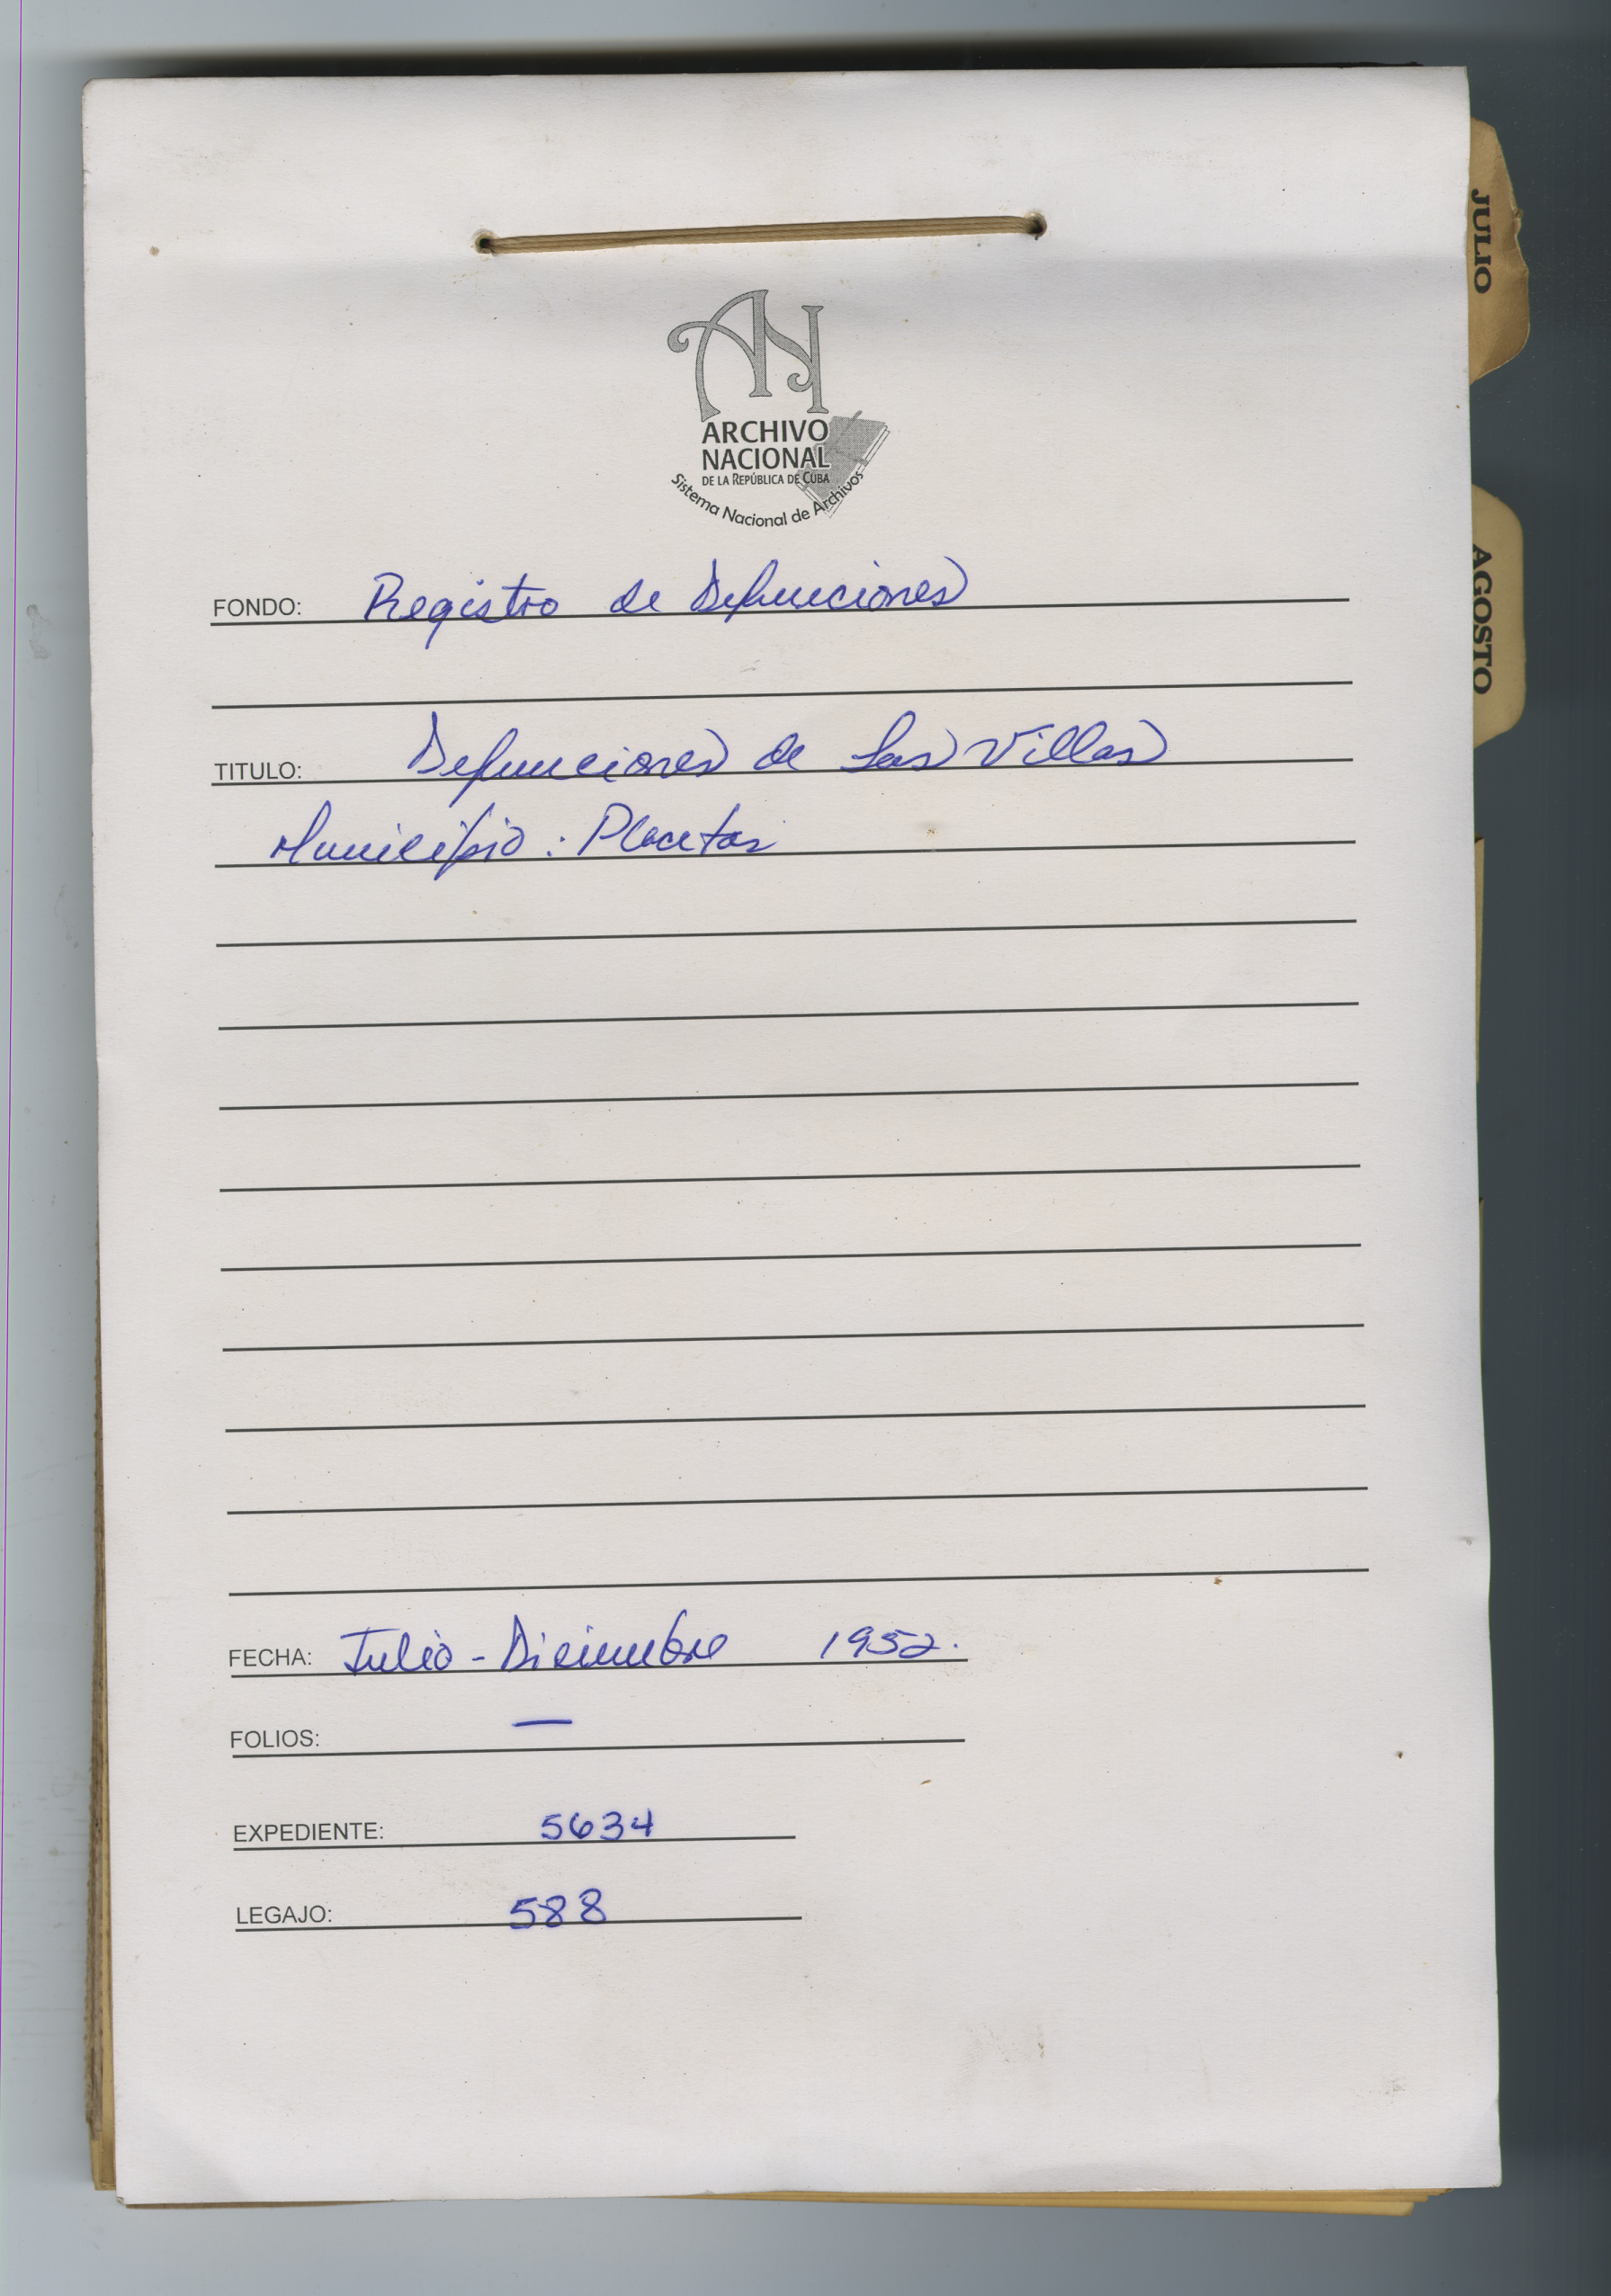 JULIO
AN
ARCHIVO
NACIONAL
DE LA REPÚBLICA DE CUBA
Sistema Nacional de Archivos
FONDO: Registro de Defunciones
AGOSTO
TITULO: Defunciones de Las Villas
Municipio: Placetas
FECHA: Julio - Diciembre 1952.
FOLIOS: —
EXPEDIENTE: 5634
LEGAJO: 588